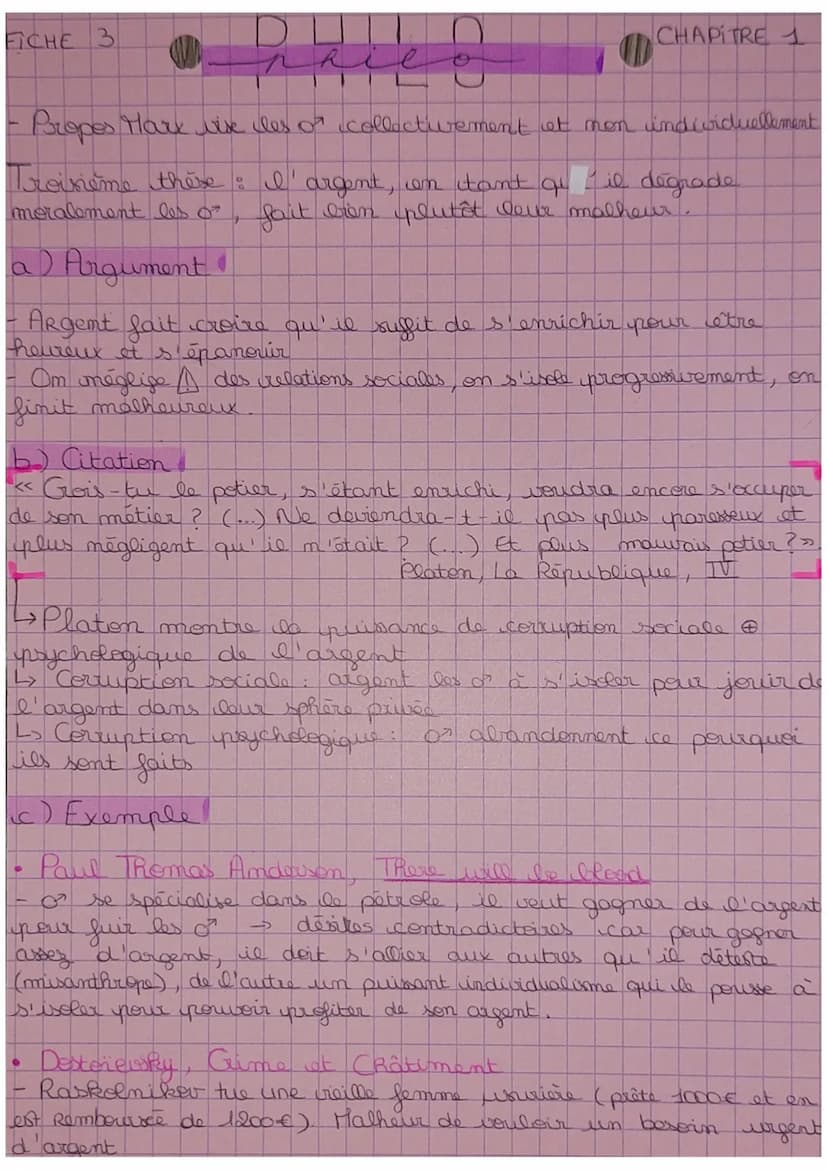 FICHE 3
PHILO
philo
CHAPITRE 1
- Propos Marx vise les ♂ collectivement et non individuellement
Troisième thèse : l'argent, en tant qu' il dégrade
moralement les ♂, fait bien plutôt leur malheur.
a) Argument
- Argent fait croire qu'il suffit de s'enrichir pour être
heureux et s'épanouir
- On néglige ⚠ des relations sociales, on s'isole progressivement, on
finit malheureux.
b) Citation
« Crois-tu le potier, s'étant enrichi, voudra encore s'occuper
de son métier ? (...) Ne deviendra-t-il pas plus paresseux et
plus négligent qu'il n'était ? (...) Et plus mauvais potier ? »
Platon, La République, IV
↳ Platon montre la puissance de corruption sociale ⊕
psychologique de l'argent
↳ Corruption sociale : argent les ♂ à s'isoler pour jouir de
l'argent dans leur sphère privée
↳ Corruption psychologique : ♂ abandonnent ce pourquoi
ils sont faits
c) Exemple
• Paul Thomas Anderson, There will be blood
- ♂ se spécialise dans le pétrole, il veut gagner de l'argent
pour fuir les ♂ → désirs contradictoires car pour gagner
assez d'argent, il doit s'allier aux autres qu'il déteste
(misanthrope), de l'autre un puissant individualisme qui le pousse à
s'isoler pour pouvoir profiter de son argent.
• Dostoïevsky, Crime et Châtiment
- Raskolnikov tue une vieille femme usurière (prête 1000€ et en
est remboursée de 1200€). Malheur de vouloir un besoin urgent
d'argent